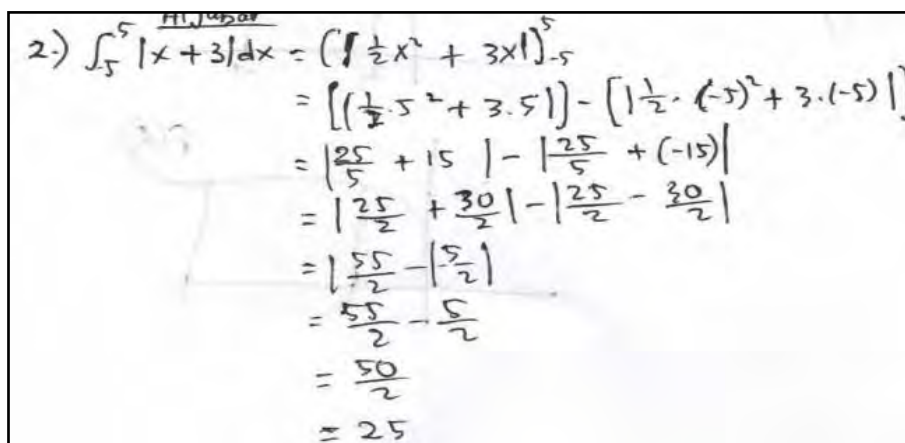 Aljabar
2.) ∫₋₅⁵ |x + 3|dx = (|½x² + 3x|)⁵₋₅
= [(½.5² + 3.5|] - [|½. (-5)² + 3.(-5)|]
= |25/5 + 15 | - |25/5 + (-15)|
= |25/2 + 30/2| - |25/2 - 30/2|
= |55/2 - |5/2|
= 55/2 - 5/2
= 50/2
= 25